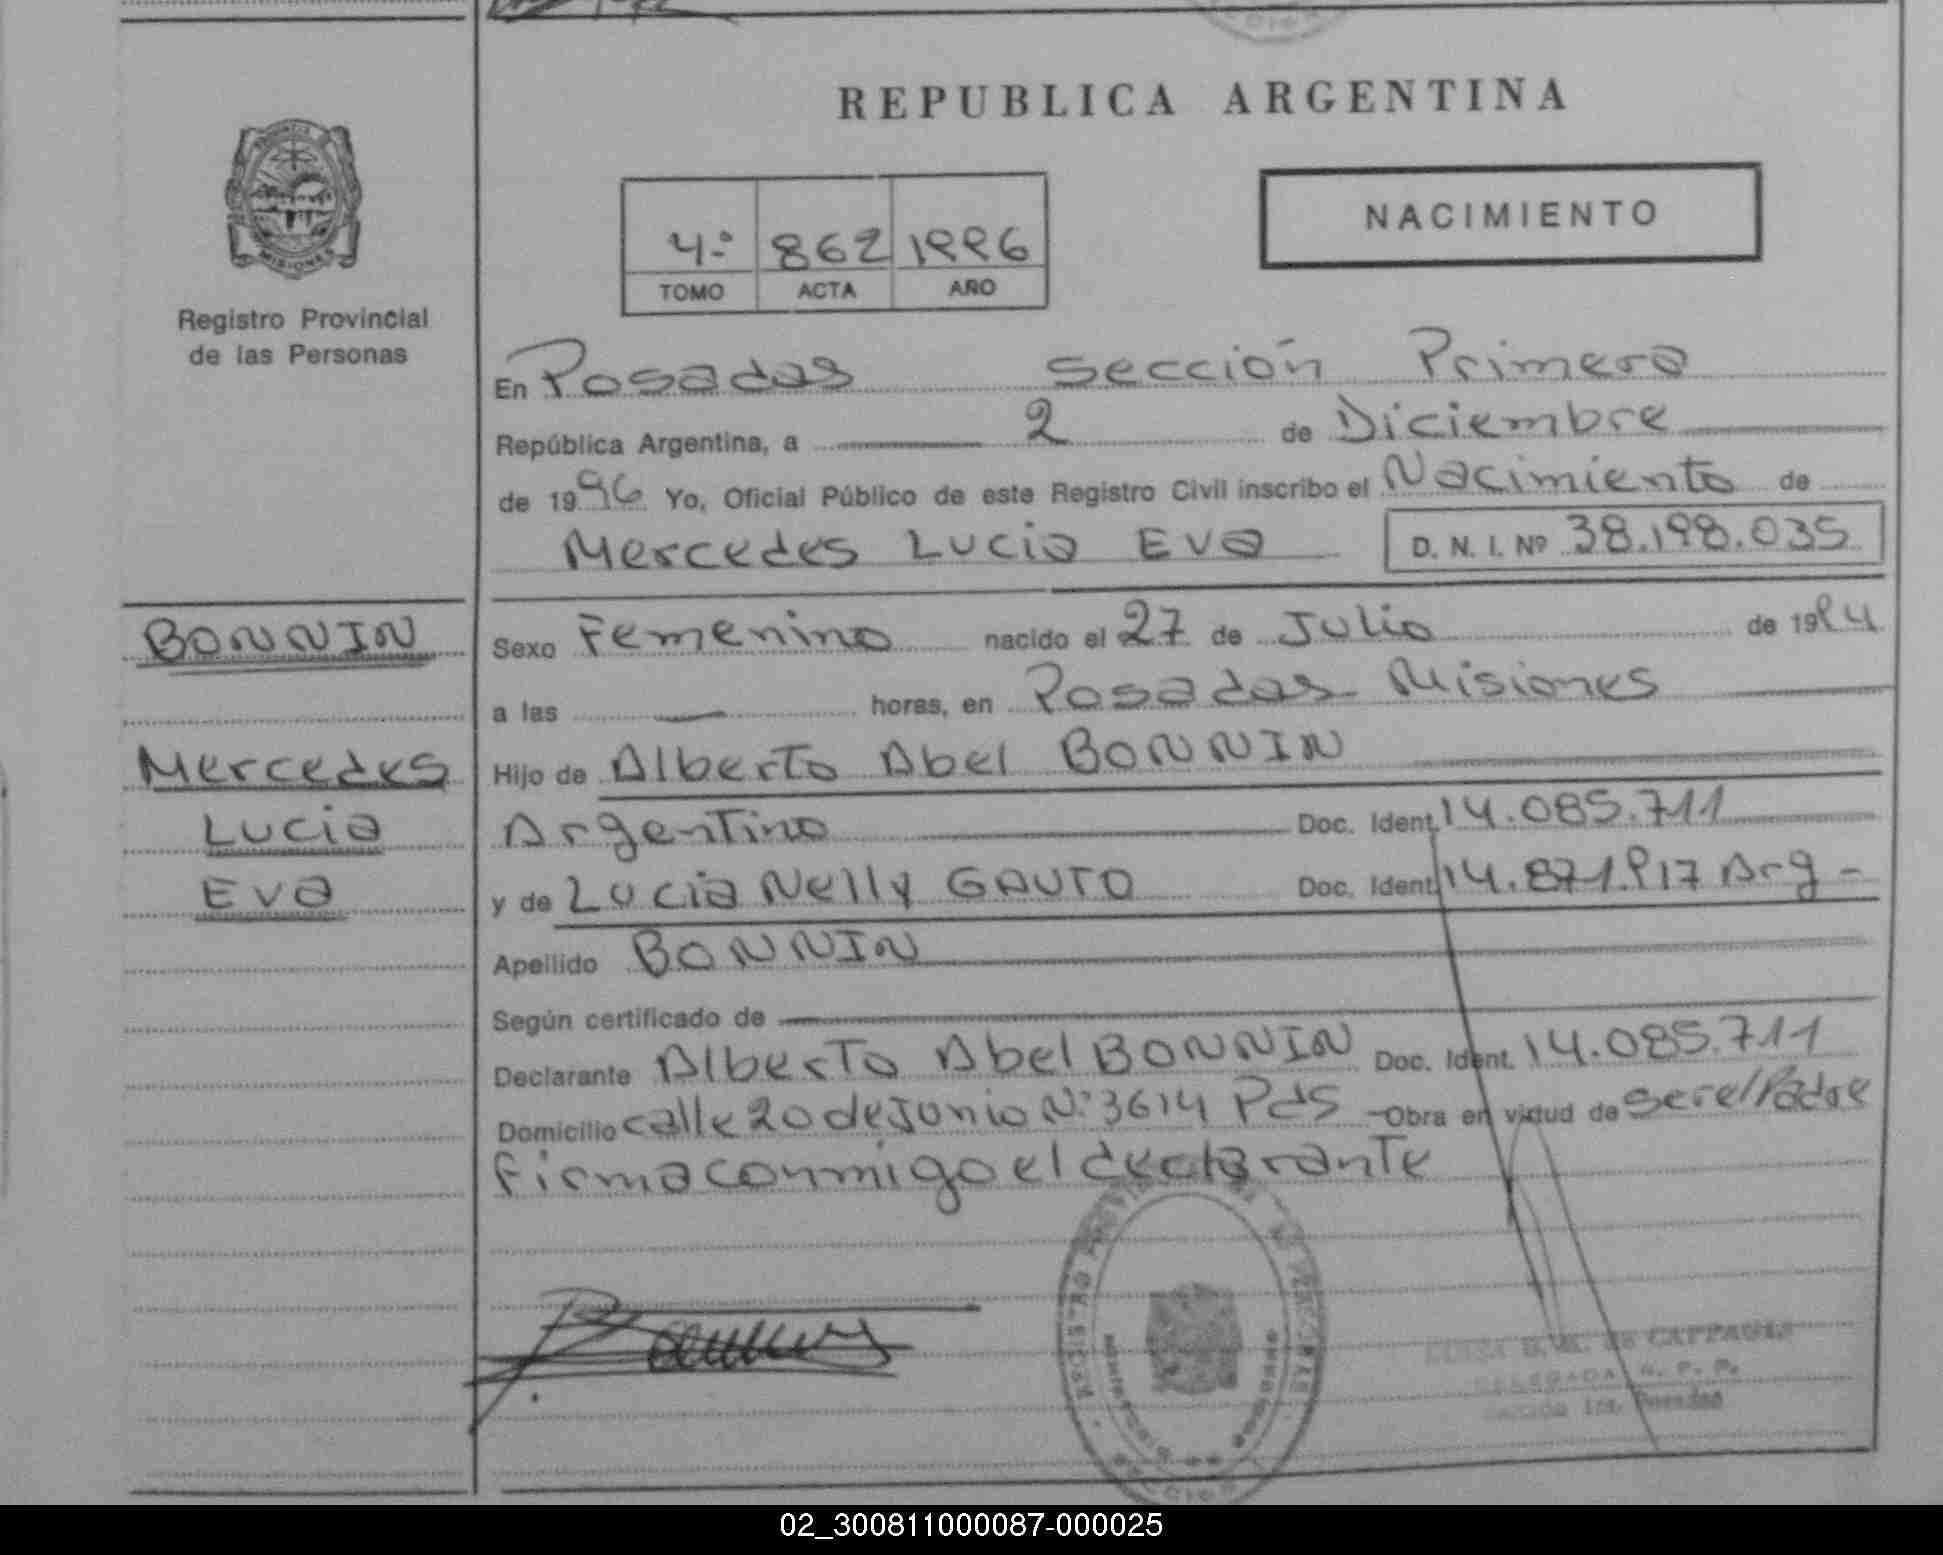 REPUBLICA ARGENTINA
NACIMIENTO
4.º 862 1996
TOMO ACTA AÑO
MISIONES
Registro Provincial
de las Personas
En Posadas sección Primera
República Argentina, a 2 de Diciembre
de 1996 Yo, Oficial Público de este Registro Civil inscribo el Nacimiento de
Mercedes Lucia Eva D. N. I. Nº 38.198.035
BONNIN
Sexo Femenino nacido el 27 de Julio de 1994
a las — horas, en Posadas - Misiones
Mercedes
Hijo de Alberto Abel BONNIN
Lucia
Argentino Doc. Ident. 14.085.711
Eva
y de Lucia Nelly GAUTO Doc. Ident. 14.871.917 Arg -
Apellido BONNIN
Según certificado de
Declarante Alberto Abel BONNIN Doc. Ident. 14.085.711
Domicilio calle 20 de Junio N.º 3614 Pds - Obra en virtud de ser el Padre
Firma conmigo el declarante
DELEGADA R. P. P.
Sección 1ra. Posadas
02_300811000087-000025